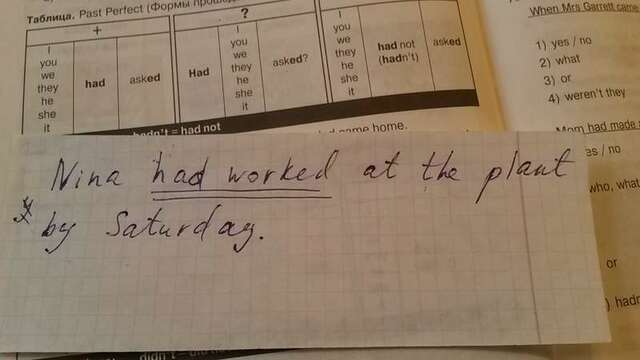 Таблица. Past Perfect (Формы прошед
+
?
I
you
we
they
he
she
it
had
asked
Had
I
you
we
they
he
she
it
asked?
I
you
we
they
he
she
it
had not
(hadn't)
asked
hadn't = had not
came home.
When Mrs Garrett came
1) yes / no
2) what
3) or
4) weren't they
Mom had made
es / no
who, what
or
) hadn
Nina had worked at the plant
by Saturday.
didn't =